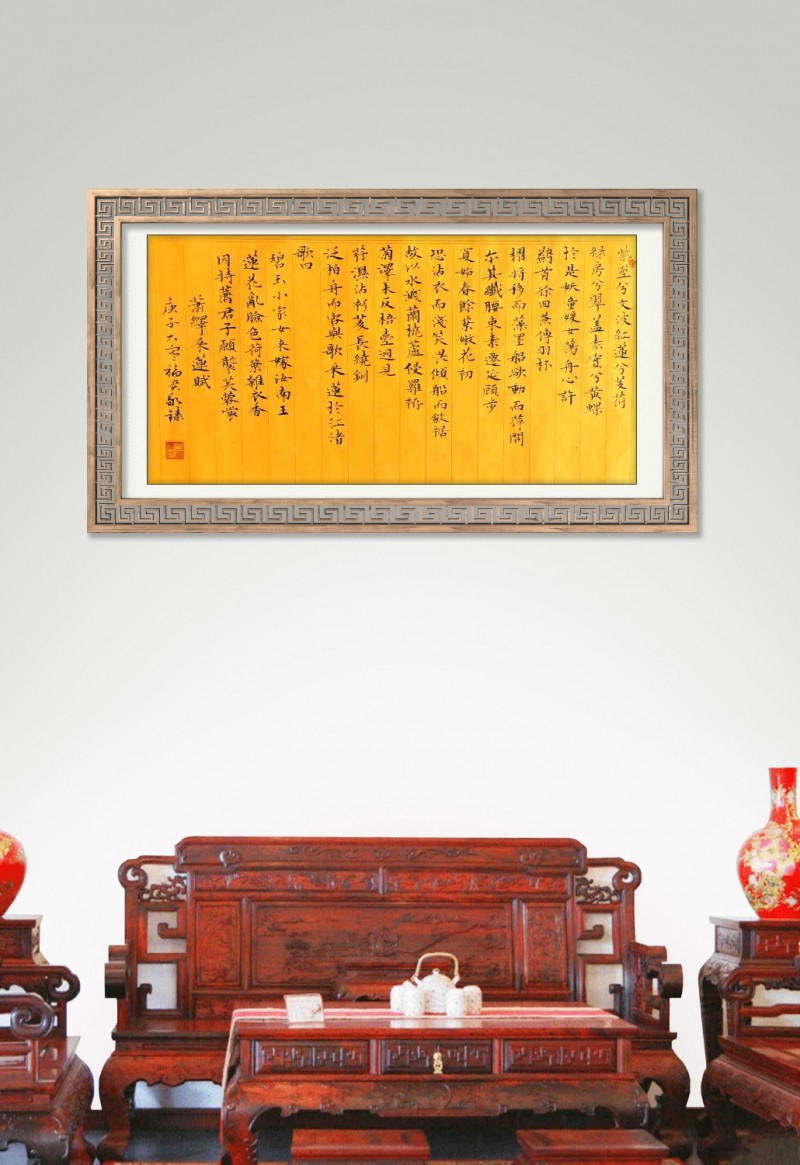 紫莖兮文波紅蓮兮芰荷
綠房兮翠蓋素實兮黃螺
於是妖童媛女蕩舟心許
鷁首徐回兼傳羽杯
櫂將移而藻罣船欲動而萍開
尔其纖腰束素遷延顧步
夏始春餘葉嫩花初
恐沾衣而淺笑畏傾船而斂裾
故以水濺蘭橈蘆侵羅
菊澤未反梧臺迥見
荇濕沾衫菱長繞釧
泛柏舟而容與歌采蓮於江渚
歌曰
碧玉小家女來嫁汝南王
蓮花亂臉色荷葉雜衣香
因持薦君子願襲芙蓉裳
蕭繹采蓮賦
庚子大雪福安敬錄